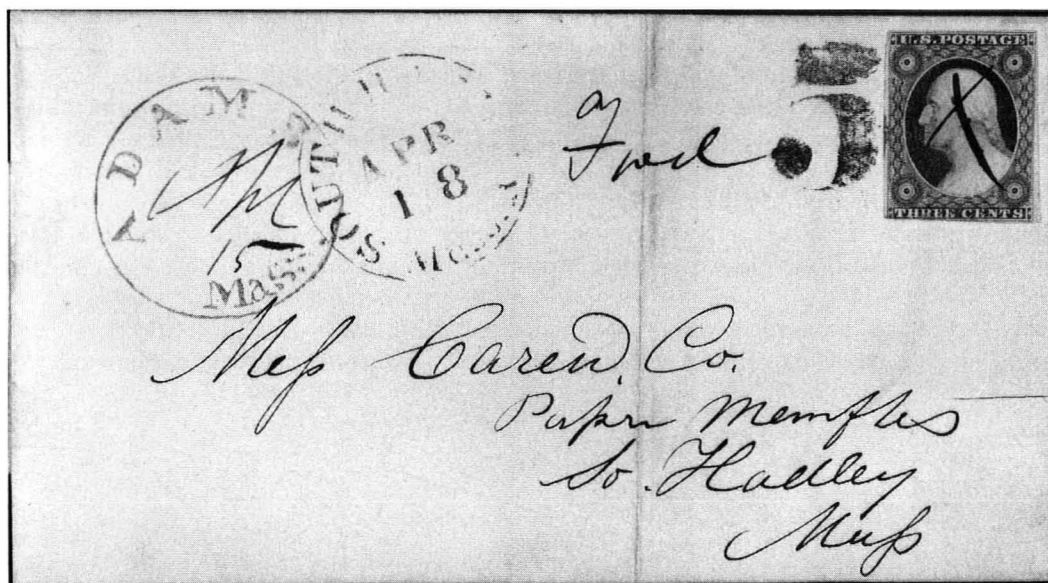 ADAMS
Apl
15
Mass.
SOUTH
APR
18
Mass.
Fwd
5
U.S. POSTAGE
THREE CENTS
Mess Carew, Co.
Papr Memftes
So. Hadley
Mass